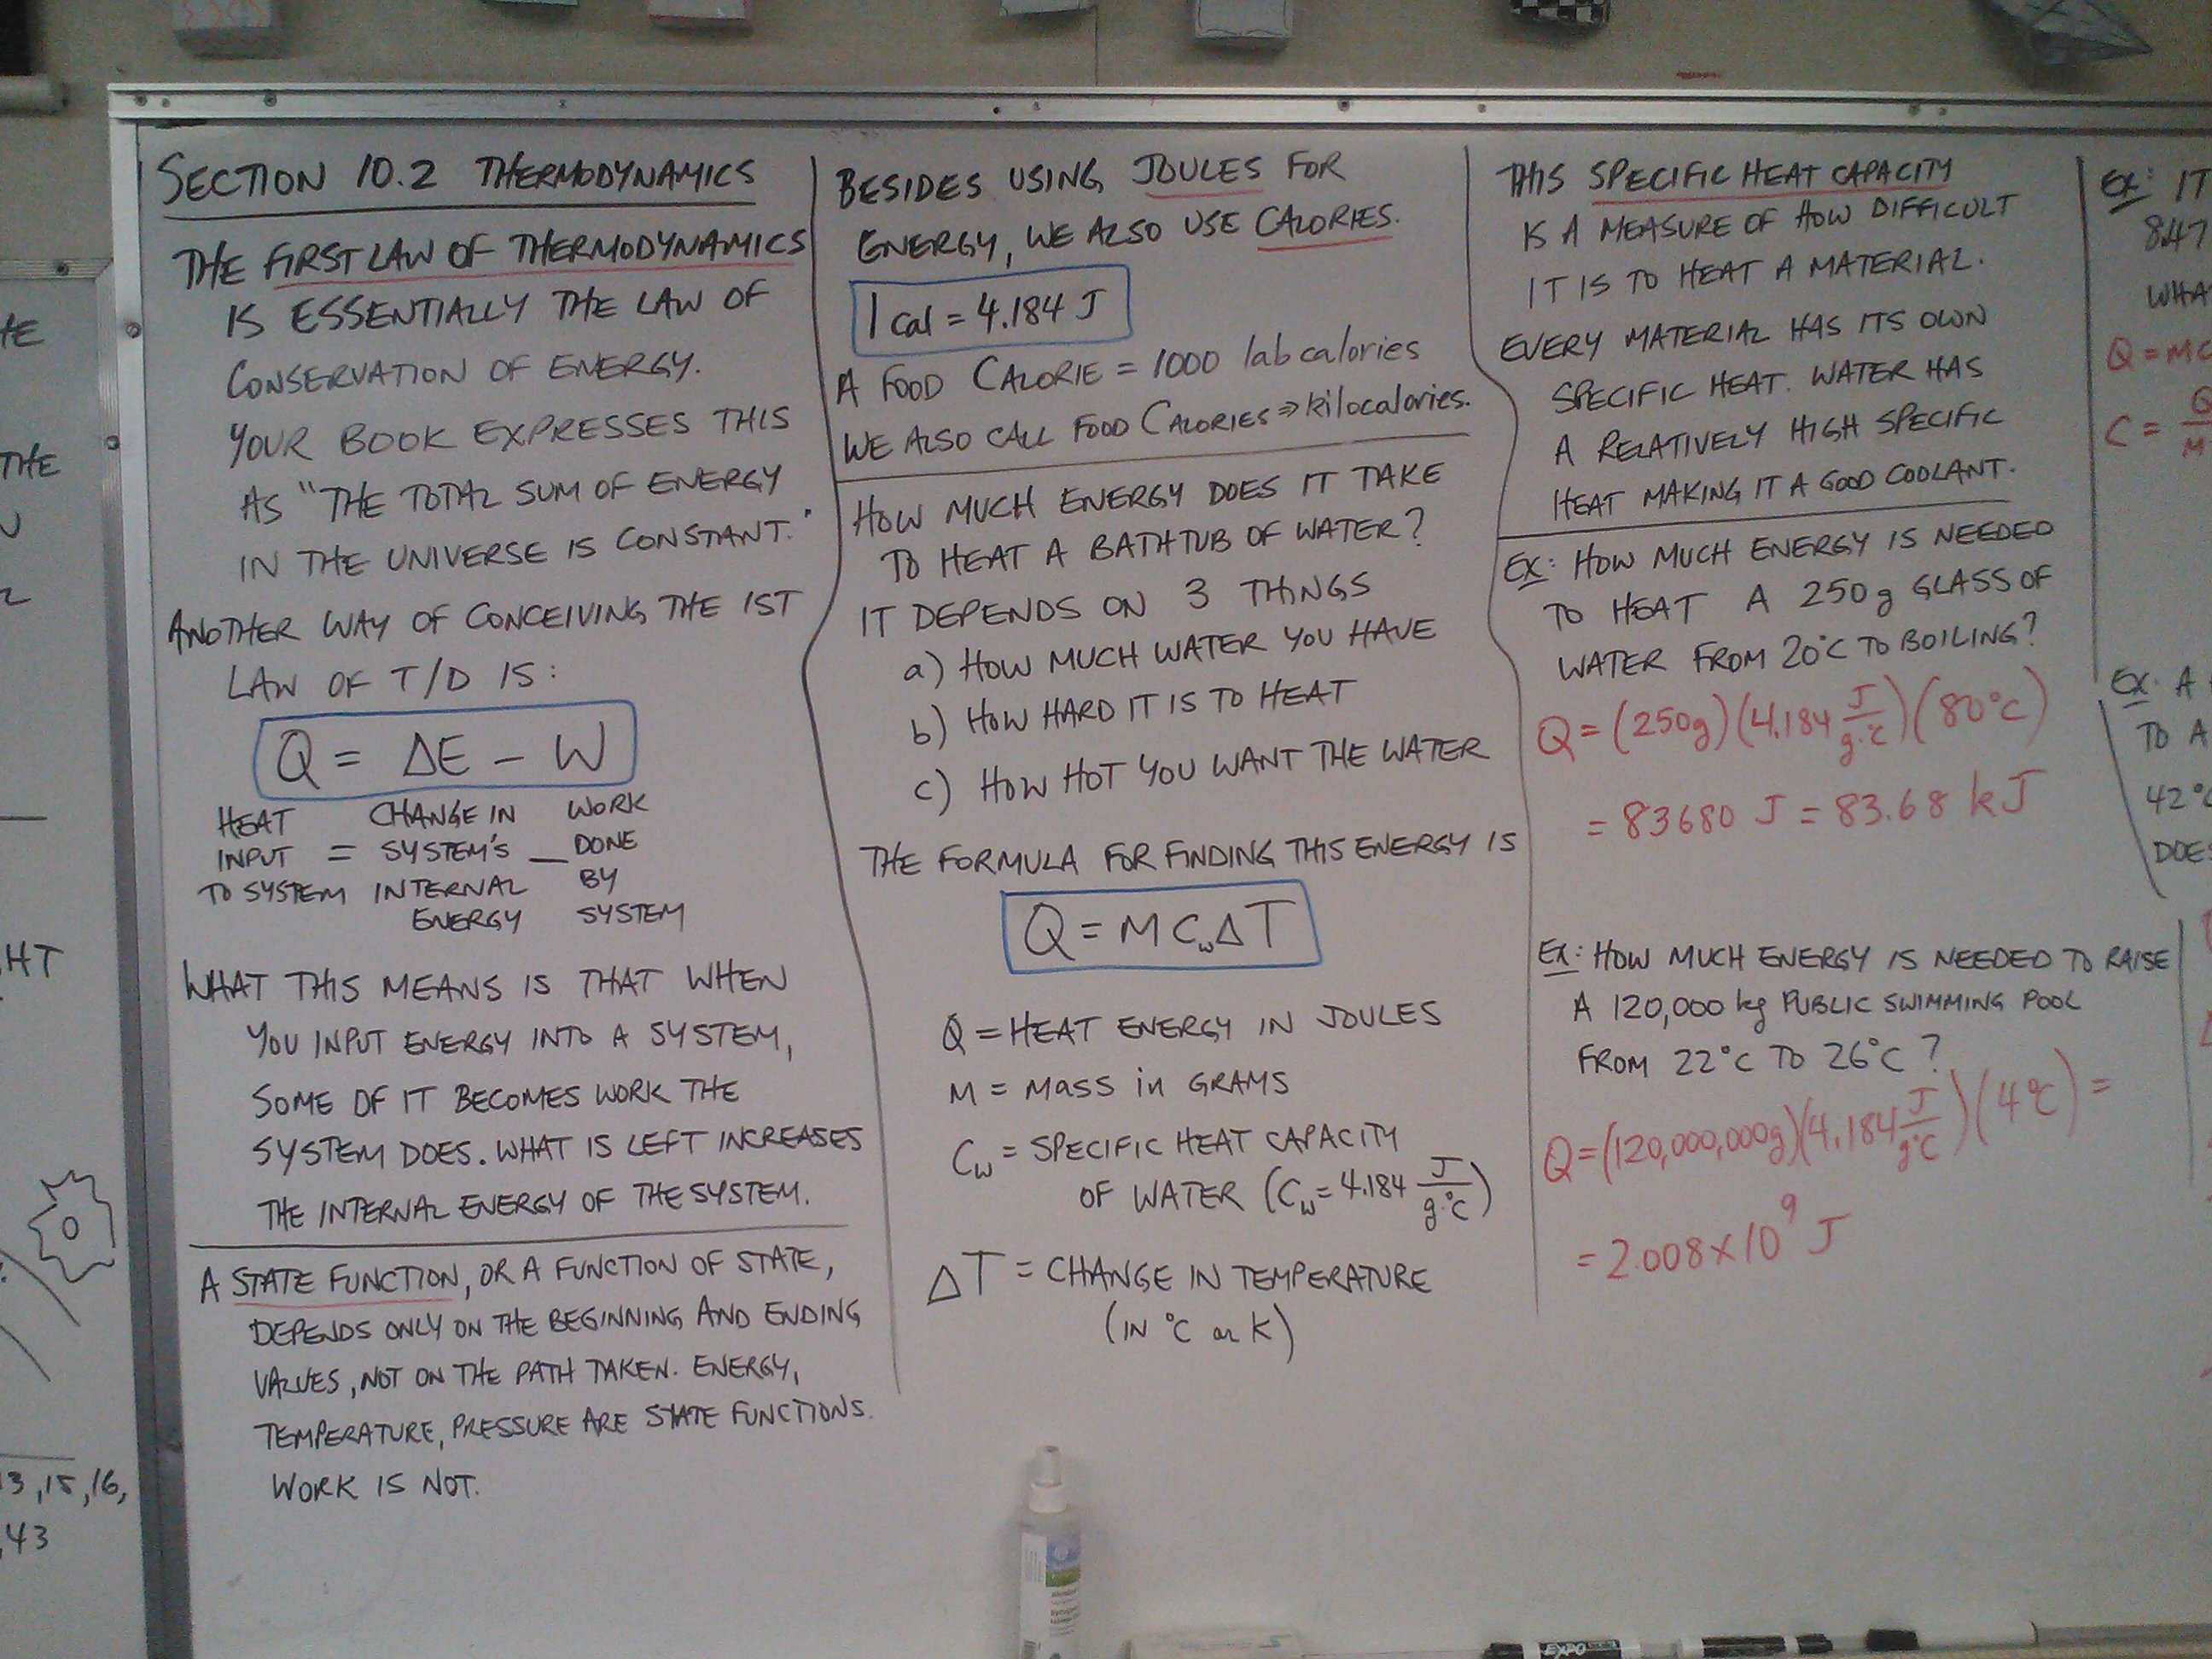 SECTION 10.2 THERMODYNAMICS
THE FIRST LAW OF THERMODYNAMICS
IS ESSENTIALLY THE LAW OF
CONSERVATION OF ENERGY.
YOUR BOOK EXPRESSES THIS
AS "THE TOTAL SUM OF ENERGY
IN THE UNIVERSE IS CONSTANT."
ANOTHER WAY OF CONCEIVING THE 1ST
LAW OF T/D IS:
Q = ΔE - W
HEAT CHANGE IN WORK
INPUT = SYSTEM'S - DONE
TO SYSTEM INTERNAL BY
ENERGY SYSTEM
WHAT THIS MEANS IS THAT WHEN
YOU INPUT ENERGY INTO A SYSTEM,
SOME OF IT BECOMES WORK THE
SYSTEM DOES. WHAT IS LEFT INCREASES
THE INTERNAL ENERGY OF THE SYSTEM.
A STATE FUNCTION, OR A FUNCTION OF STATE,
DEPENDS ONLY ON THE BEGINNING AND ENDING
VALUES, NOT ON THE PATH TAKEN. ENERGY,
TEMPERATURE, PRESSURE ARE STATE FUNCTIONS.
WORK IS NOT.
BESIDES USING JOULES FOR
ENERGY, WE ALSO USE CALORIES.
1 cal = 4.184 J
A FOOD CALORIE = 1000 lab calories
WE ALSO CALL FOOD CALORIES ⇒ kilocalories.
HOW MUCH ENERGY DOES IT TAKE
TO HEAT A BATHTUB OF WATER?
IT DEPENDS ON 3 THINGS
a) HOW MUCH WATER YOU HAVE
b) HOW HARD IT IS TO HEAT
c) HOW HOT YOU WANT THE WATER
THE FORMULA FOR FINDING THIS ENERGY IS
Q = M Cw ΔT
Q = HEAT ENERGY IN JOULES
M = MASS in GRAMS
Cw = SPECIFIC HEAT CAPACITY
OF WATER (Cw = 4.184 J/g·°C)
ΔT = CHANGE IN TEMPERATURE
(IN °C or K)
THIS SPECIFIC HEAT CAPACITY
IS A MEASURE OF HOW DIFFICULT
IT IS TO HEAT A MATERIAL.
EVERY MATERIAL HAS ITS OWN
SPECIFIC HEAT. WATER HAS
A RELATIVELY HIGH SPECIFIC
HEAT MAKING IT A GOOD COOLANT.
EX: HOW MUCH ENERGY IS NEEDED
TO HEAT A 250g GLASS OF
WATER FROM 20°C TO BOILING?
Q = (250g)(4.184 J/g·°C)(80°C)
= 83680 J = 83.68 kJ
EX: HOW MUCH ENERGY IS NEEDED TO RAISE
A 120,000 kg PUBLIC SWIMMING POOL
FROM 22°C TO 26°C?
Q = (120,000,000g)(4.184 J/g·°C)(4°C) =
= 2.008 x 10⁹ J
EX: IT
8.47
Q = MC
C = Q/M
EX: A
TO A
42°C
DOES
THE
HT
13, 15, 16,
,43
EXPO